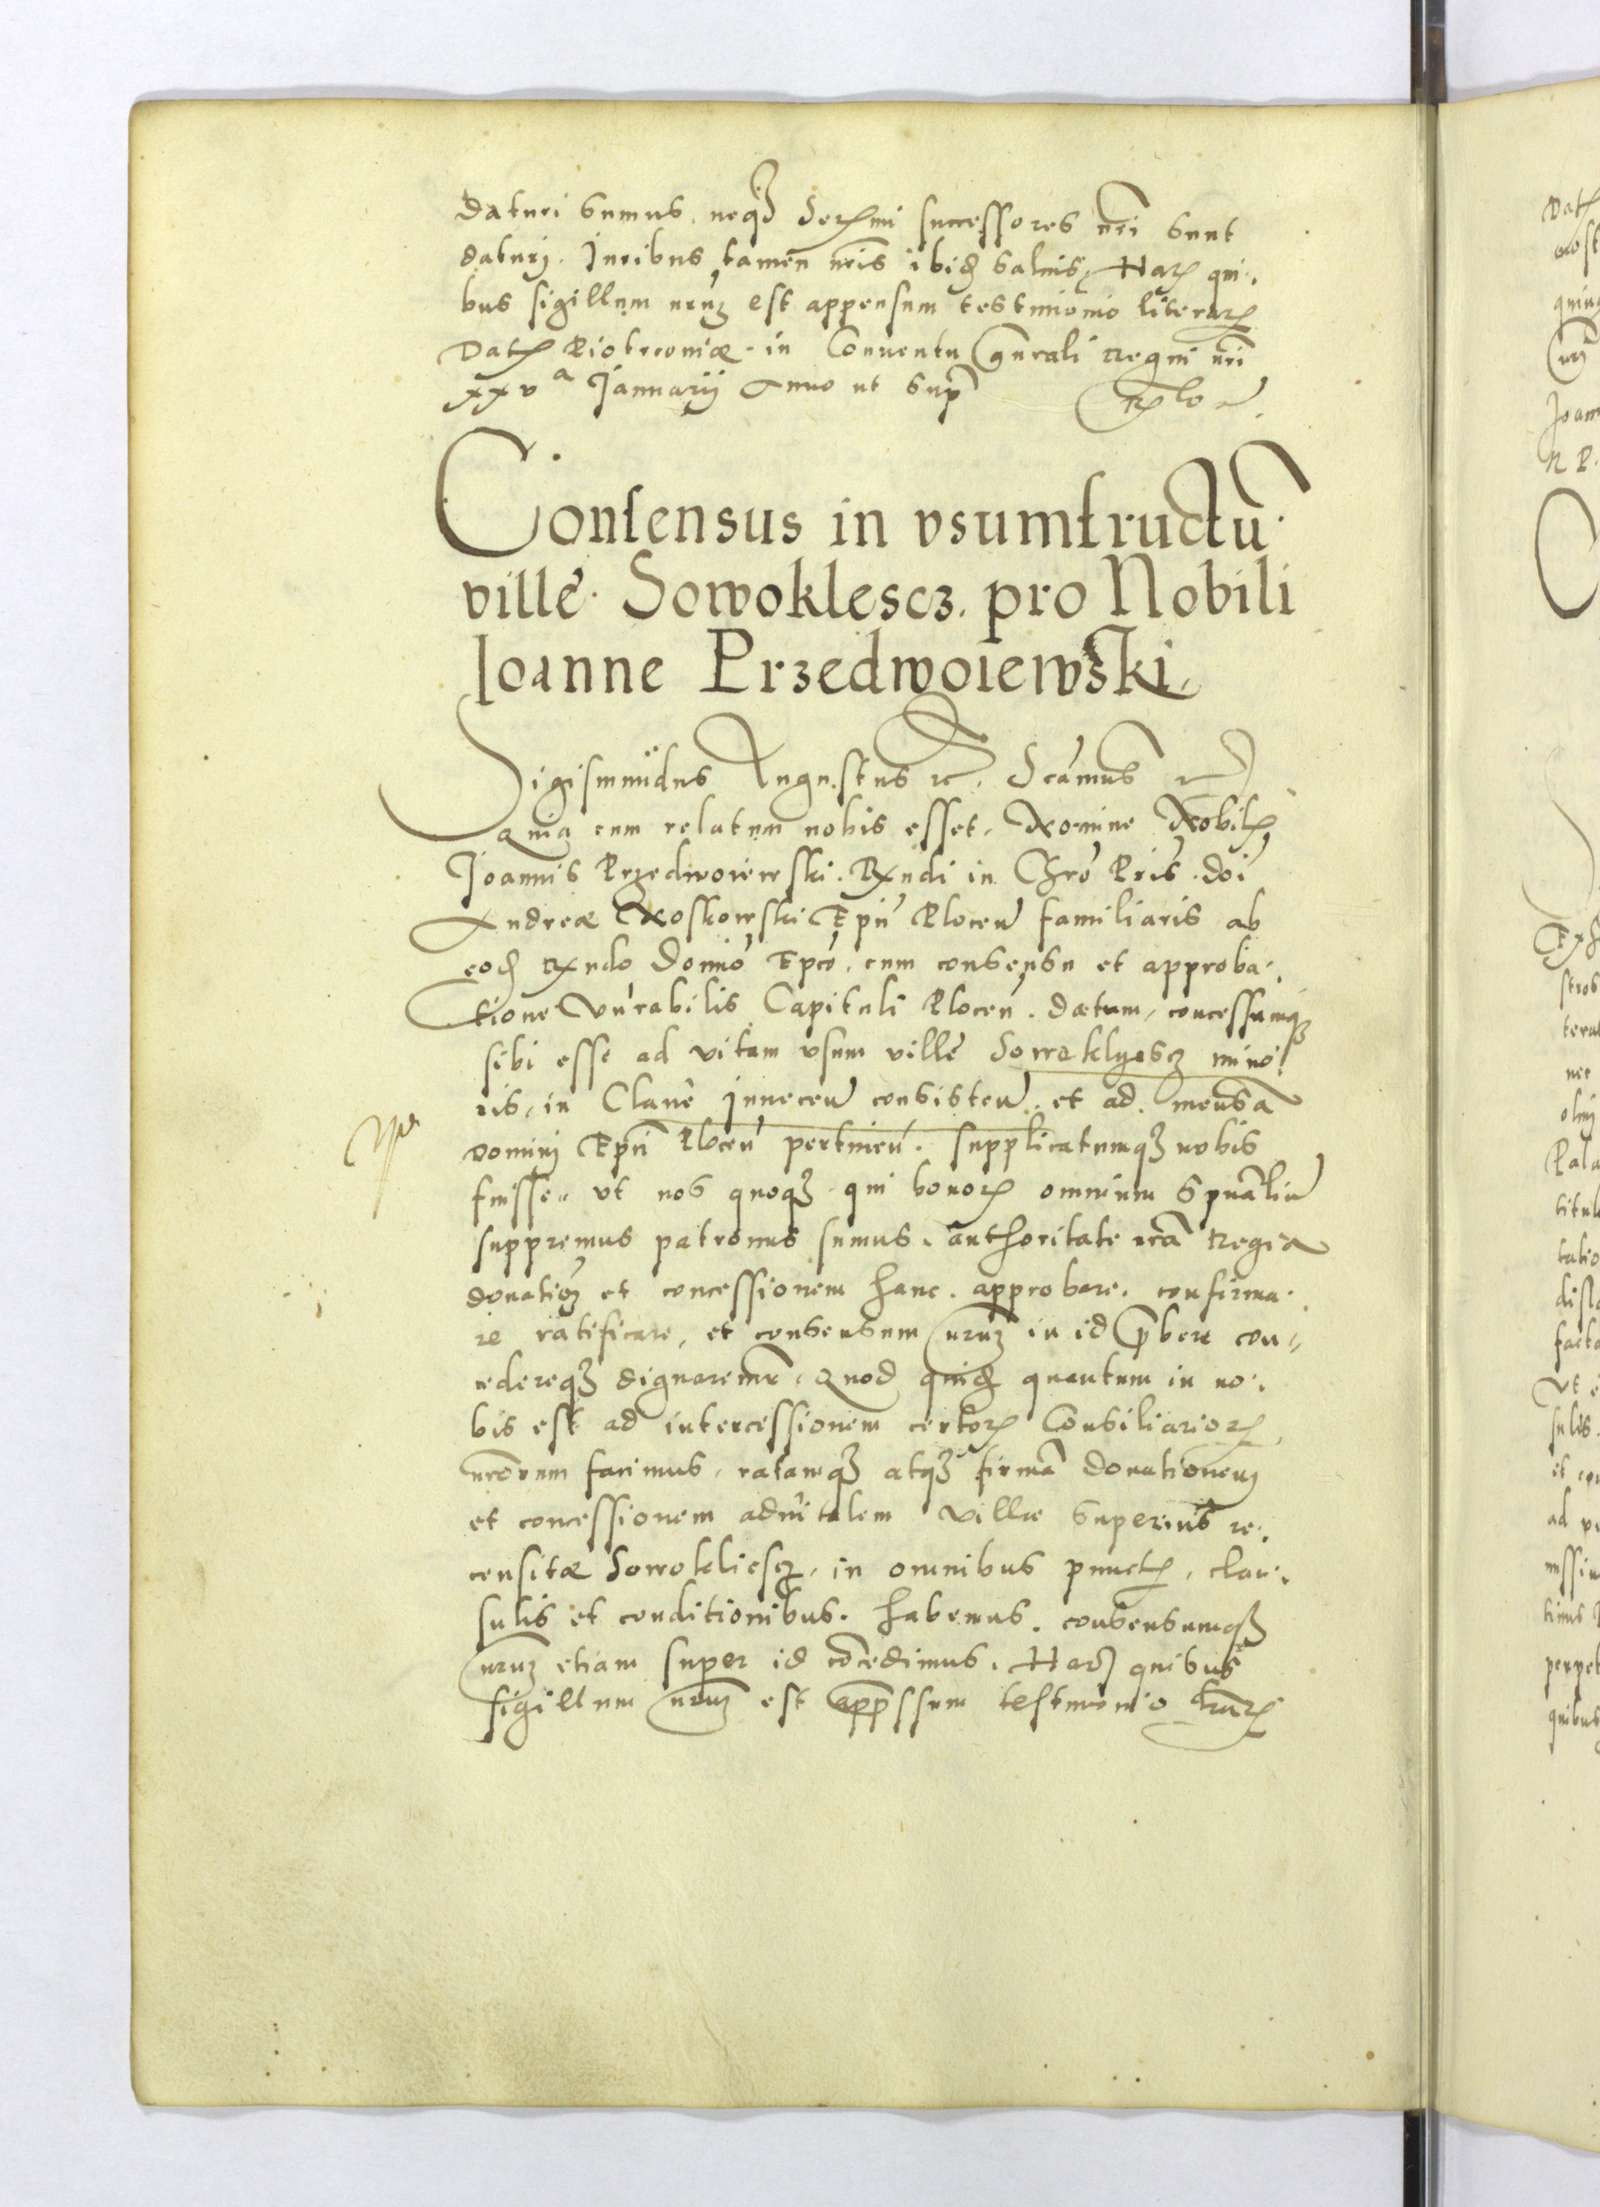 daturi sumus, neq₃ Serᵐⁱ successores nr̃i sunt
daturi. Juribus tamen nr̃is ibid. salvis. Harꝝ qui-
bus sigillum nrũm est appensum testimonio literarꝝ
Datꝝ Piotrcoviæ in Conventu gñrali Regni nr̃i
xxvᵃ Januarij Anno ut supra
Consensus in vsumfructũ
villẽ Sowoklescz pro Nobili
Ioanne Przedwoiewski
Sigismũdus Augustus &c. Scamus &c
Quia cum relatum nobis esset, Nomine Nobilꝭ
Joannis Przedwoiewski Rx̃ndi in Chrõ Pris dñi
Andreæ Noskowski Ep̃i Plocen̄ familiaris ab
eod. Rx̃ndo domĩo Ep̃co, cum consensu et approba-
tione Vñrabilis Capituli Plocen̄. datum, concessumq₃
sibi esse ad vitam vsum villẽ Sowaklyescz mino
ris, in Clave Inneceñ consisteñ, et ad mensã
domini Ep̃i Plocen̄ pertineñ. supplicatumq₃ nobis
fuisse, vt nos quoq₃ qui bonorꝝ omnium spũaliũ
suppremus patronus sumus, authoritate nr̃a Regia
donatiõem et concessionem hanc approbare, confirma-
re ratificare, et consensum nrũm in id p̃bere con-
cedereq₃ dignaremur. Quod quid. quantum in no-
bis est ad intercessionem certorꝝ Consiliariorꝝ
nr̃orum facimus, ratamq₃ atq₃ firmã donationem
et concessionem advitalem villæ superius re-
censitæ Sowokliescz, in omnibus punctꝭ, clau-
sulis et conditionibus habemus, consensumq₃
nrũm etiam super id cõcedimus. Harꝝ quibus
sigillum nrũm est app̃ssum testimonio lr̃arꝝ